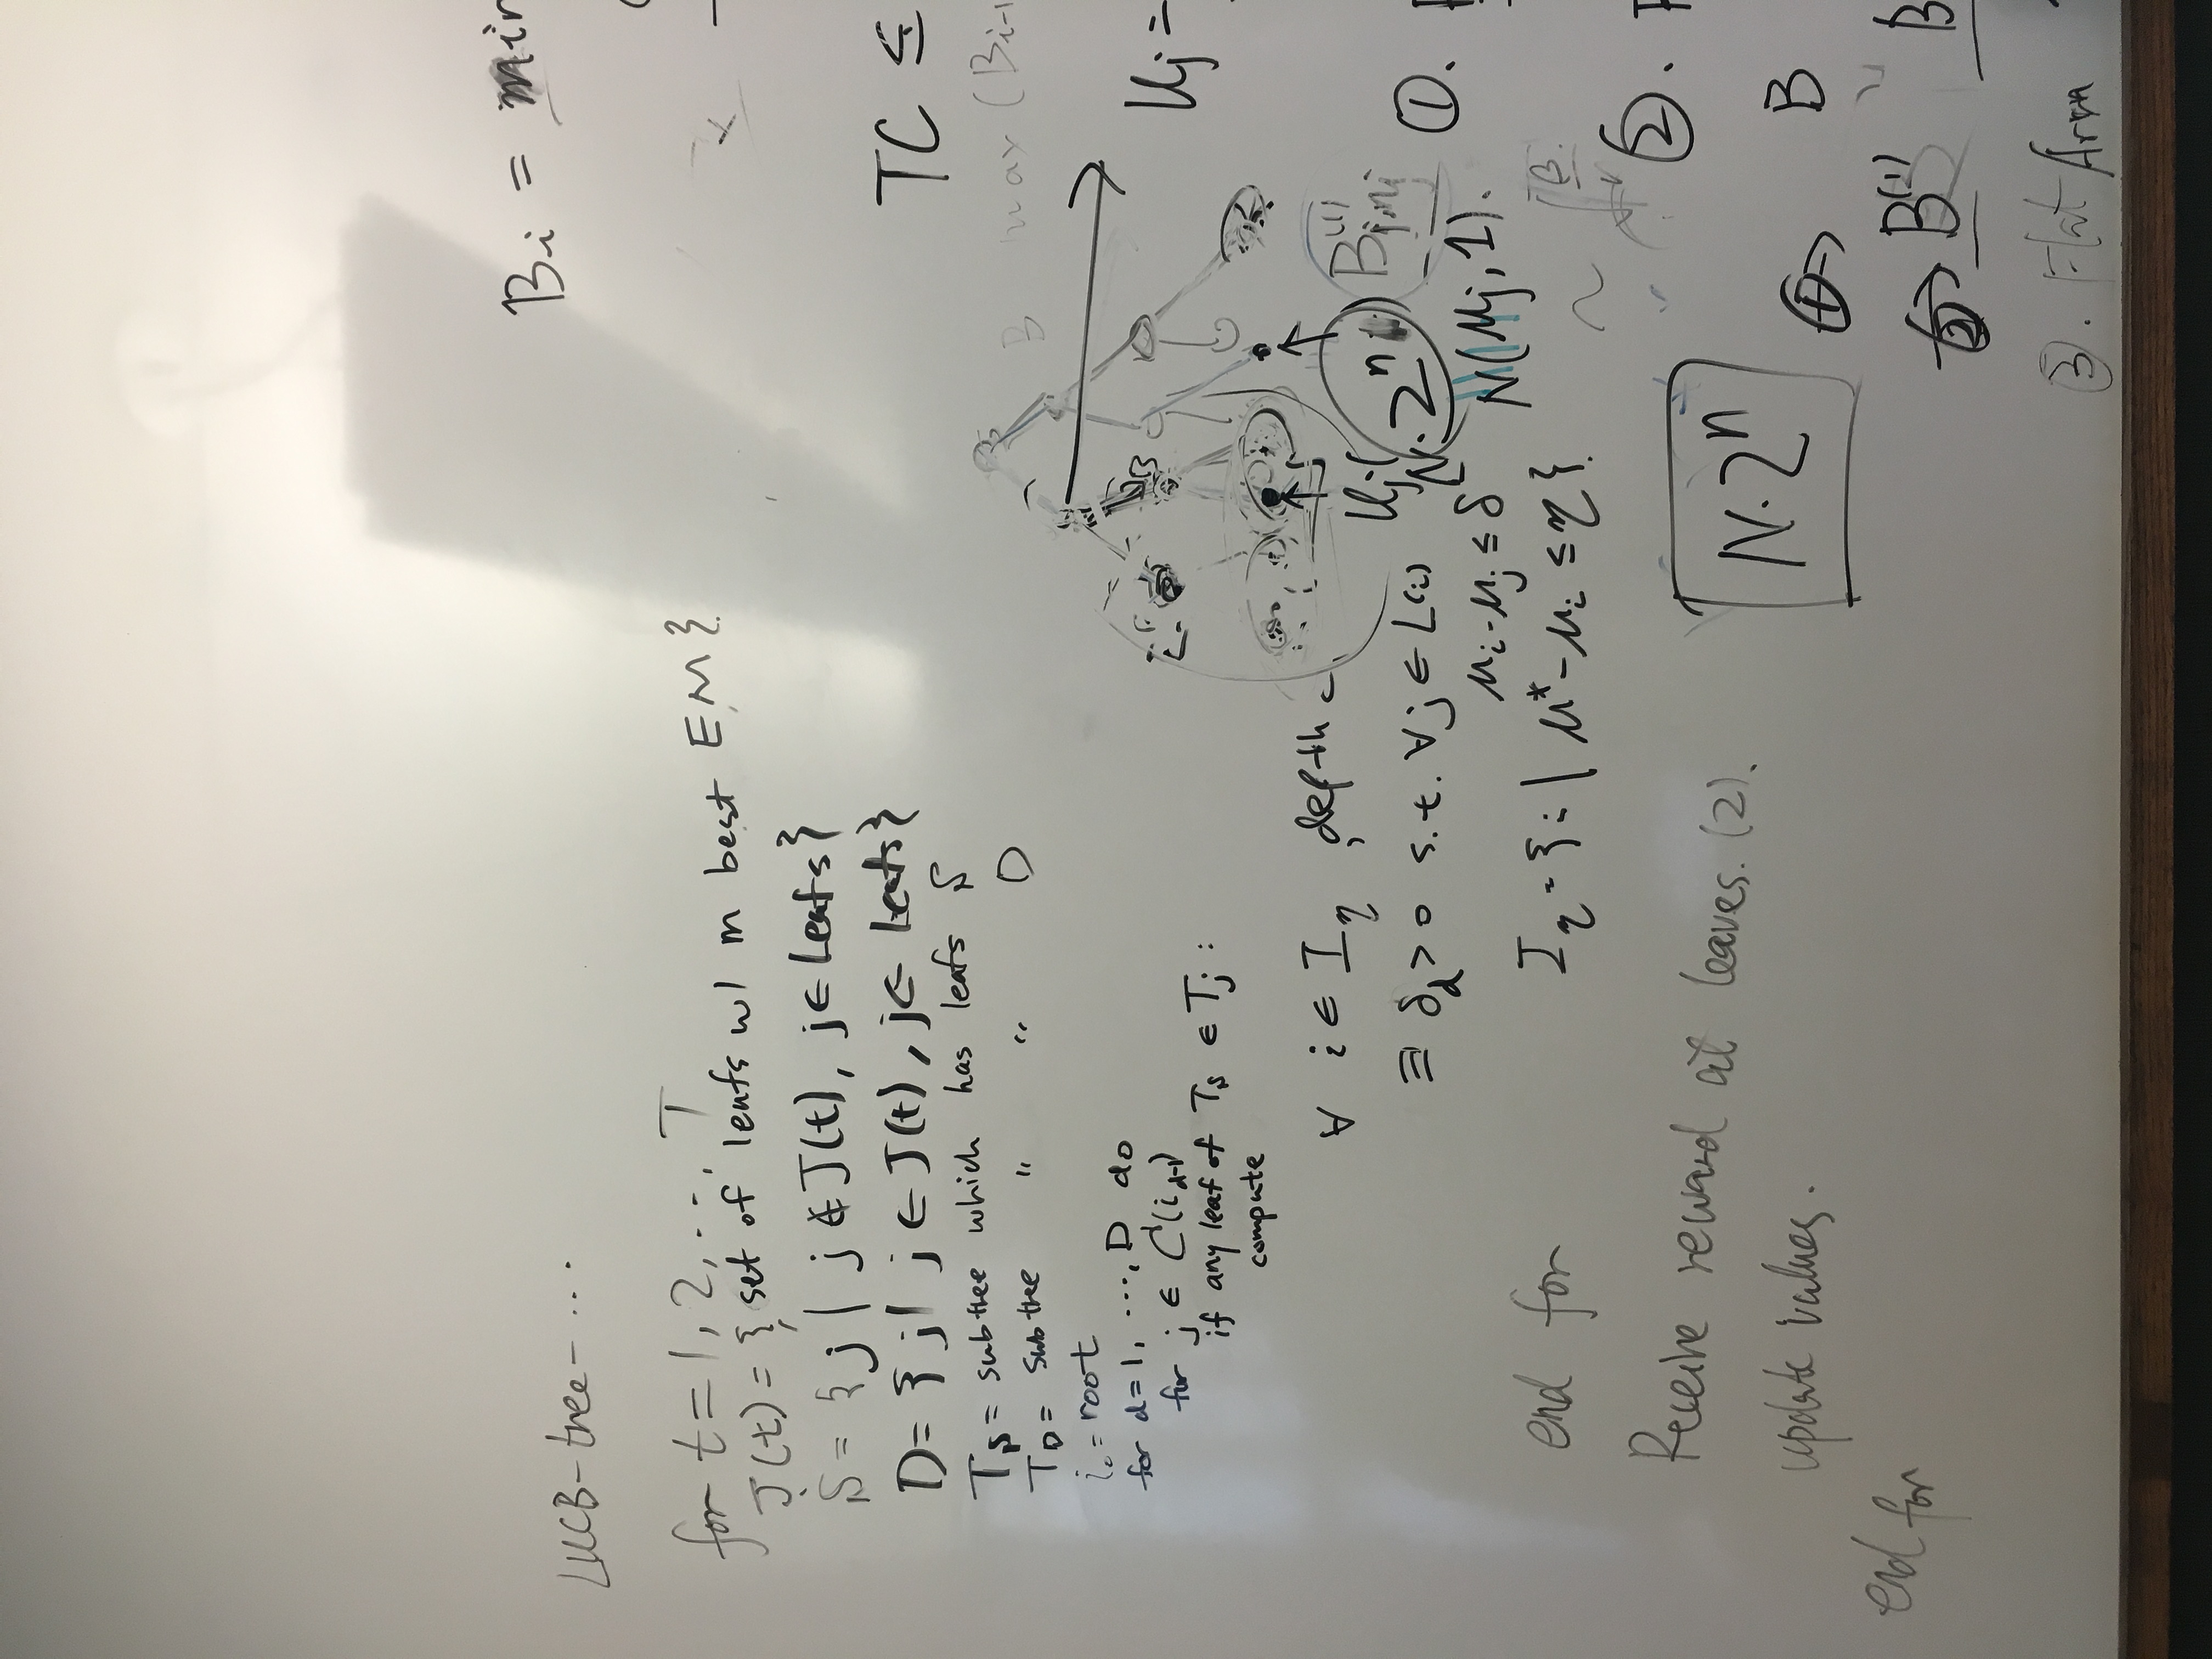 LUCB-tree-...
for t=1,2,...,T
J(t) = { set of leafs w/ m best EM}
S = {j | j ∉ J(t), j ∈ Leafs}
D = {j | j ∈ J(t), j ∈ Leafs}
T_S = subtree which has leafs S
T_D = subtree " " D
i_0 = root
for d=1, ..., D do
for j ∈ C(i_{d-1})
if any leaf of T_S ∈ T_j :
compute
∀ i ∈ I_η , depth
∃ δ_d > 0 s.t. ∀j ∈ L(i)
μ_i - μ_j ≤ δ
end for
I_η = {i | μ* - μ_i ≤ η}
Receive reward at leaves. (2).
update values.
end for
B_i = min
TC ≤
B max (B_{i-1}
U_j =
B
U_j(
N·2^n
B^{(1)}
N(μ_j, 1).
N·2^n
①.
②.
①→ B
②→ B^{(1)} B
③. Flat Area